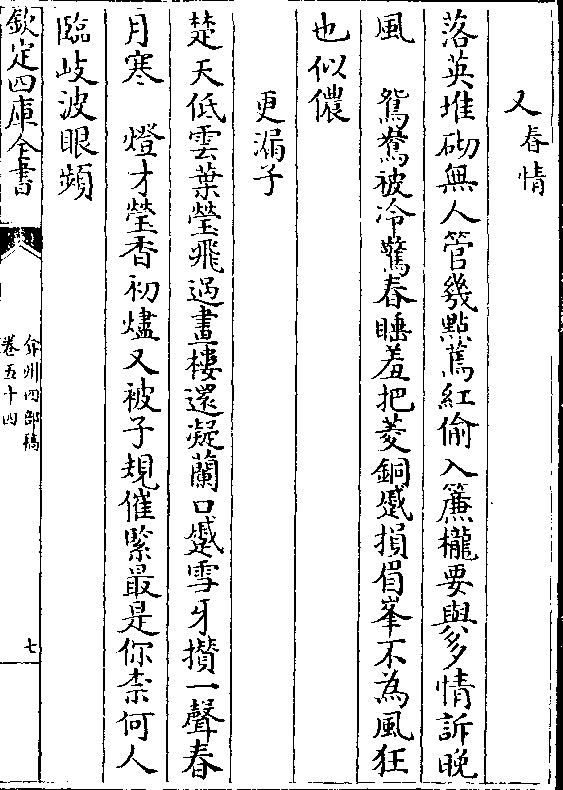 又春情
落英堆砌無人管幾點蔫紅偷入簾櫳要與多情訴晚
風　鴛鴦被冷驚春睡羞把菱銅蹙損眉峯不為風狂
也似儂
更漏子
楚天低雲葉瑩飛過畫樓還凝蘭口蹙雪牙攅一聲春
月寒　燈才瑩香初燼又被子規催緊最是你柰何人
臨岐波眼頻
欽定四庫全書
弇州四部稿
卷五十四
七